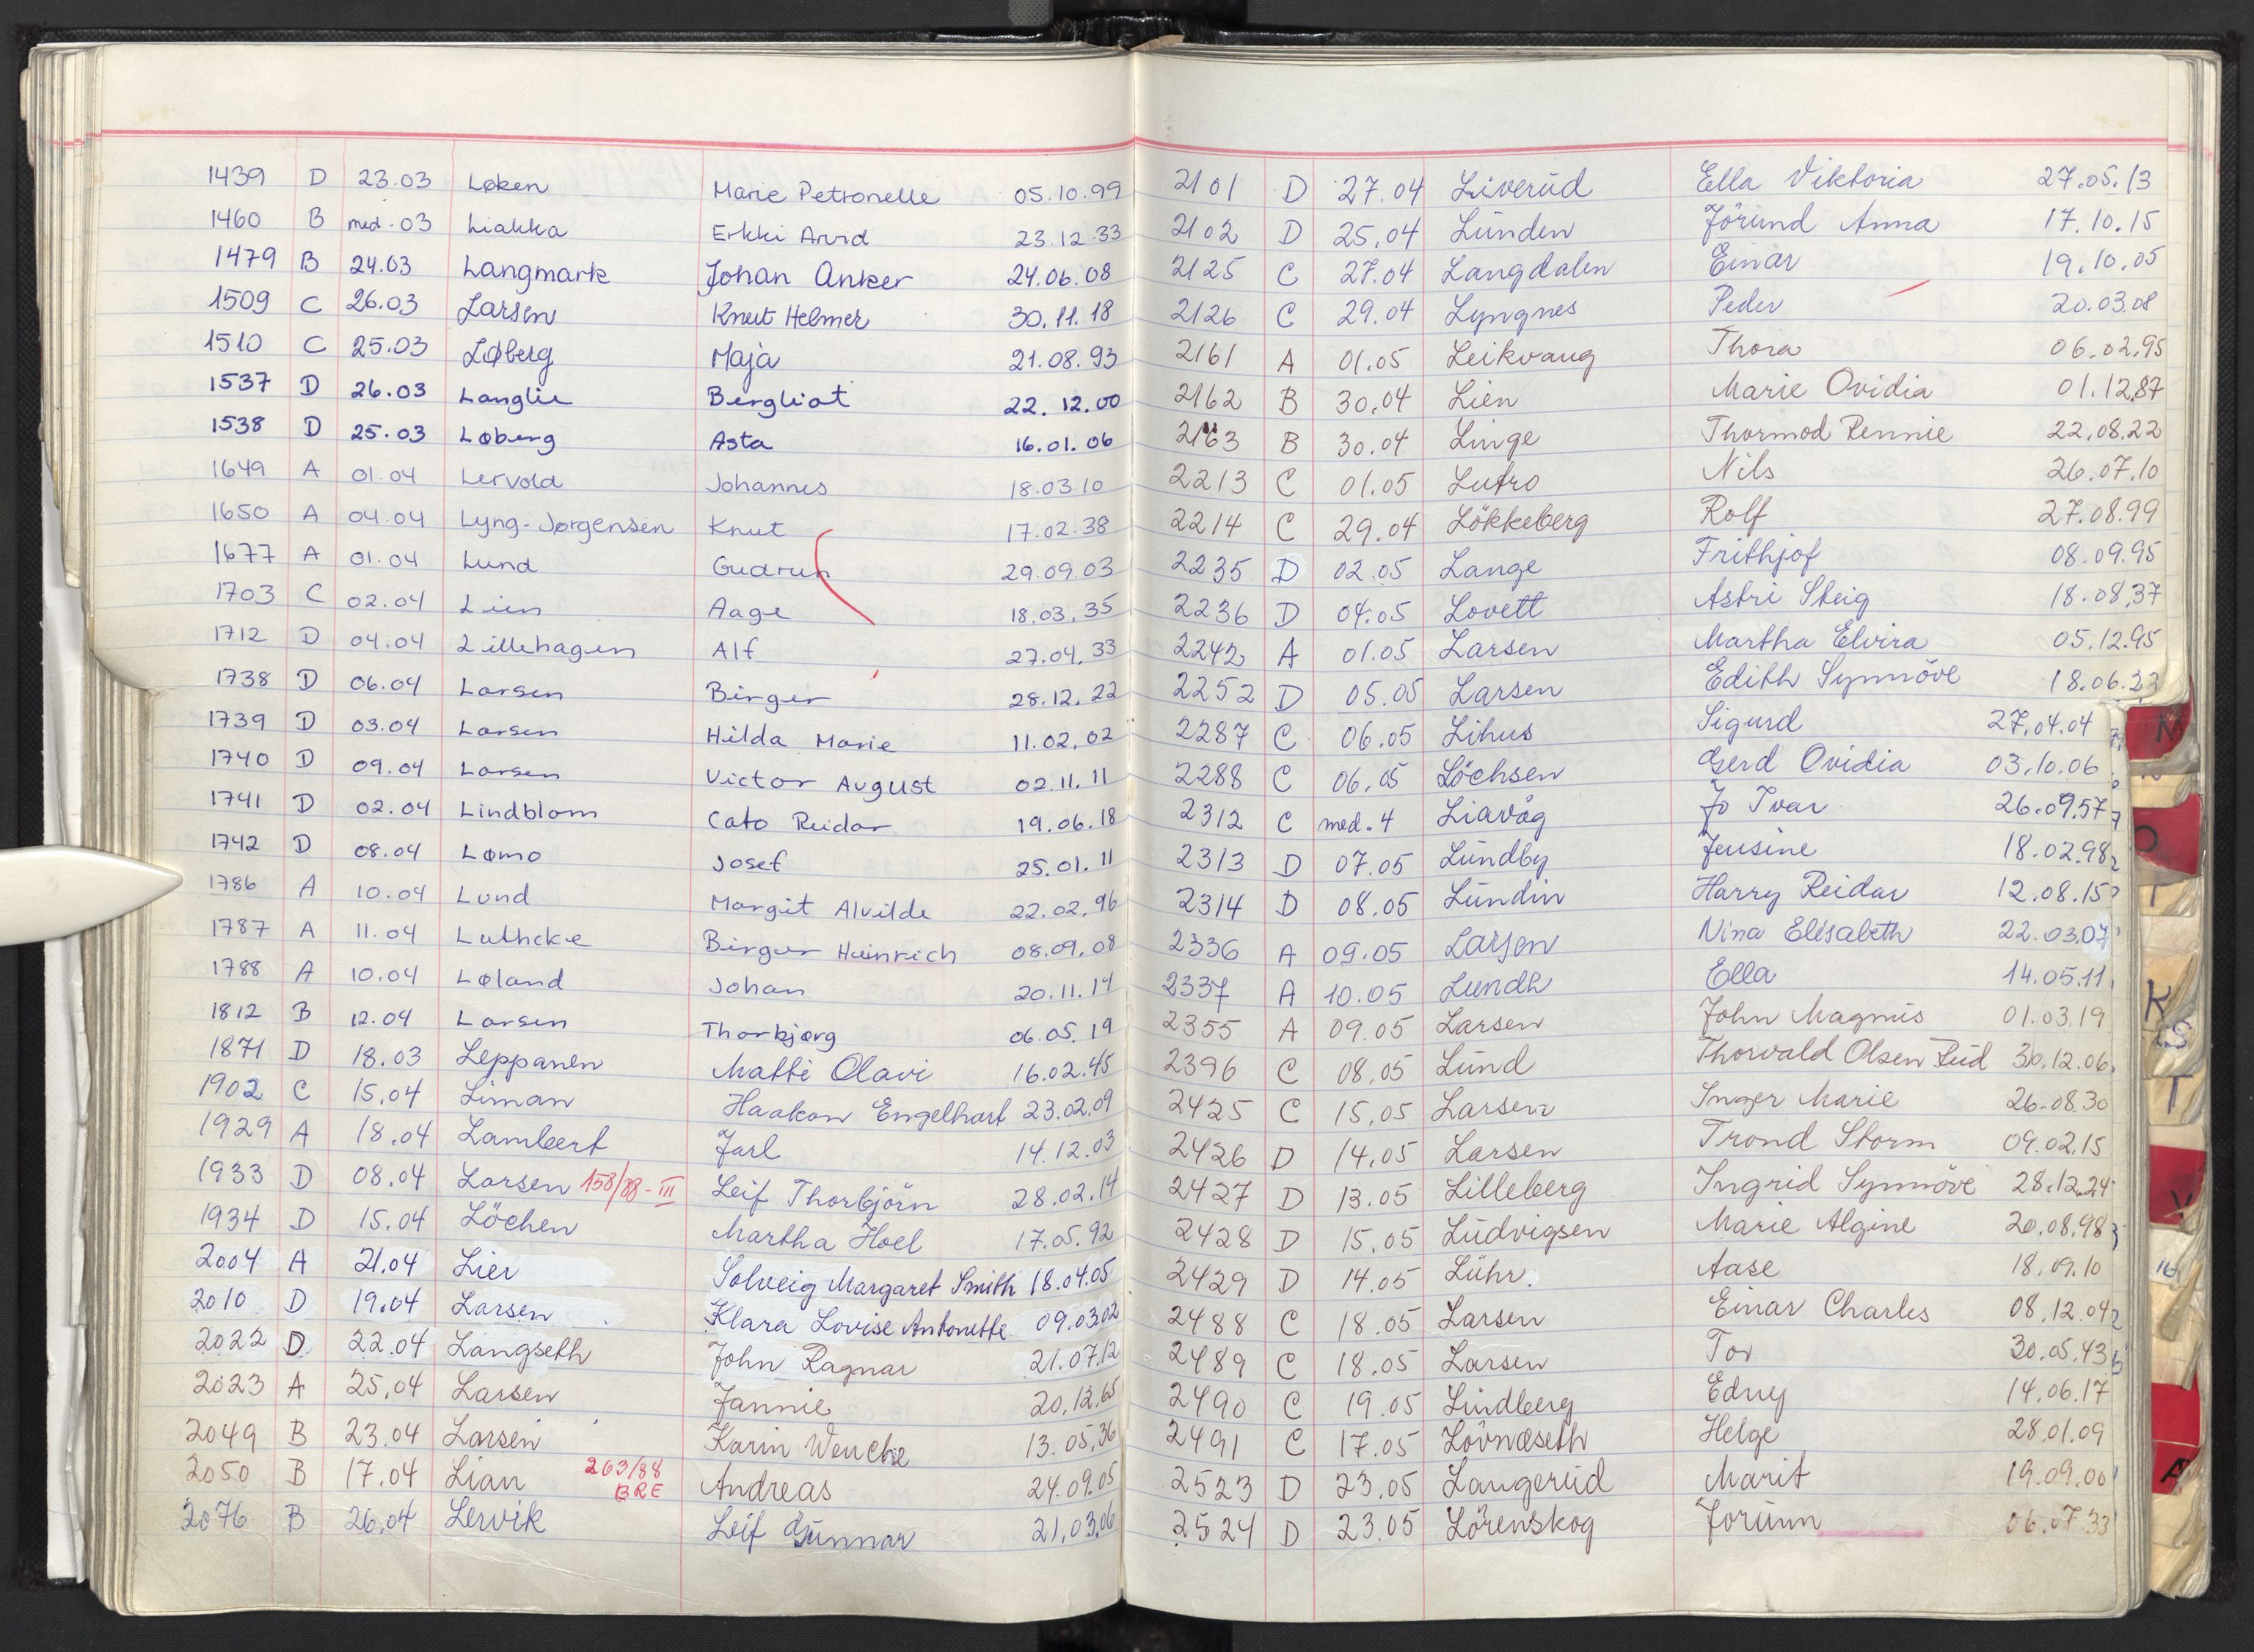 1439 D 23.03 Løken Marie Petronelle 05.10.99
1460 B med.03 Liakka Erkki Arvid 23.12.33
1479 B 24.03 Langmark Johan Anker 24.06.08
1509 C 26.03 Larsen Knut Helmer 30.11.18
1510 C 25.03 Løberg Maja 21.08.93
1537 D 26.03 Langlie Bergliot 22.12.00
1538 D 25.03 Løberg Asta 16.01.06
1649 A 01.04 Lervold Johannes 18.03.10
1650 A 04.04 Lyng-Jørgensen Knut 17.02.38
1677 A 01.04 Lund Gudrun 29.09.03
1703 C 02.04 Lien Aage 18.03.35
1712 D 04.04 Lillehagen Alf 27.04.33
1738 D 06.04 Larsen Birger 28.12.22
1739 D 03.04 Larsen Hilda Marie 11.02.02
1740 D 09.04 Larsen Victor August 02.11.11
1741 D 02.04 Lindblom Cato Reidar 19.06.18
1742 D 08.04 Lømo Josef 25.01.11
1786 A 10.04 Lund Margit Alvilde 22.02.96
1787 A 11.04 Luthcke Birger Heinrich 08.09.08
1788 A 10.04 Løland Johan 20.11.14
1812 B 12.04 Larsen Thorbjørg 06.05.19
1871 D 18.03 Leppanen Matti Olavi 16.02.45
1902 C 15.04 Liman Haakon Engelhart 23.02.09
1929 A 18.04 Lambert Jarl 14.12.03
1933 D 08.04 Larsen 158/88-III Leif Thorbjörn 28.02.14
1934 D 15.04 Löchen Martha Hoel 17.05.92
2004 A 21.04 Lier Solveig Margaret Smith 18.04.05
2010 D 19.04 Larsen Klara Lovise Antonette 09.03.02
2022 D 22.04 Langseth John Ragnar 21.07.12
2023 A 25.04 Larsen Jannie 20.12.65
2049 B 23.04 Larsen Karin Wenche 13.05.36
2050 B 17.04 Lian 263/88 BRE Andreas 24.09.05
2076 B 26.04 Lervik Leif Gunnar 21.03.06
2101 D 27.04 Liverud Ella Viktoria 27.05.13
2102 D 25.04 Lunden Jörund Anna 17.10.15
2125 C 27.04 Langdalen Einar 19.10.05
2126 C 29.04 Lyngnes Peder 20.03.08
2161 A 01.05 Leikvang Thora 06.02.95
2162 B 30.04 Lien Marie Ovidia 01.12.87
2163 B 30.04 Linge Thormod Rennie 22.08.22
2213 C 01.05 Lutro Nils 26.07.10
2214 C 29.04 Lökkeberg Rolf 27.08.99
2235 D 02.05 Lange Frithjof 08.09.95
2236 D 04.05 Lovett Astri Steig 18.08.37
2242 A 01.05 Larsen Martha Elvira 05.12.95
2252 D 05.05 Larsen Edith Synnöve 18.06.22
2287 C 06.05 Lihus Sigurd 27.04.04
2288 C 06.05 Löchsen Gerd Ovidia 03.10.06
2312 C med.4 Liavåg Jo Ivar 26.09.57
2313 D 07.05 Lundby Jensine 18.02.98
2314 D 08.05 Lundin Harry Reidar 12.08.15
2336 A 09.05 Larsen Nina Elisabeth 22.03.07
2337 A 10.05 Lundh Ella 14.05.11
2355 A 09.05 Larsen John Magnus 01.03.19
2396 C 08.05 Lund Thorvald Olsen Rud 30.12.06
2425 C 15.05 Larsen Inger Marie 26.08.30
2426 D 14.05 Larsen Trond Storm 09.02.15
2427 D 13.05 Lilleberg Ingrid Synnöve 28.12.24
2428 D 15.05 Ludvigsen Marie Algine 20.08.98
2429 D 14.05 Lühr. Aase 18.09.10
2488 C 18.05 Larsen Einar Charles 08.12.04
2489 C 18.05 Larsen Tor 30.05.43
2490 C 19.05 Lindberg Edny 14.06.17
2491 C 17.05 Lövnæseth Helge 28.01.09
2523 D 23.05 Langerud Marit 19.09.00
2524 D 23.05 Lörenskog Jorunn 06.07.33
M
K
S
T
V